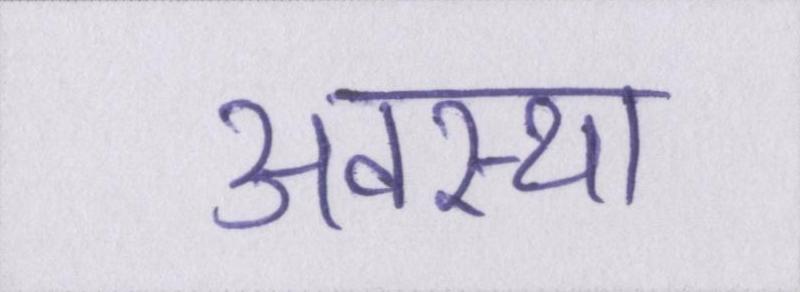 अवस्था